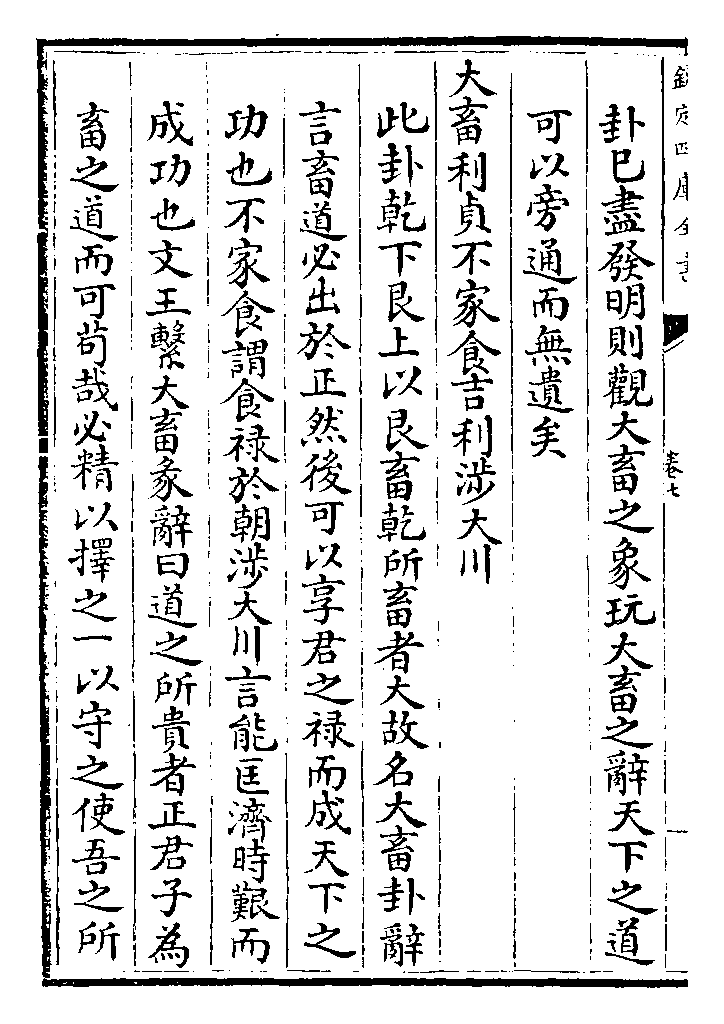 欽定四庫全書
卷七
卦已盡發明則觀大畜之象玩大畜之辭天下之道
可以旁通而無遺矣
大畜利貞不家食吉利涉大川
此卦乾下艮上以艮畜乾所畜者大故名大畜卦辭
言畜道必出於正然後可以享君之禄而成天下之
功也不家食謂食禄於朝涉大川言能匡濟時艱而
成功也文王繫大畜彖辭曰道之所貴者正君子為
畜之道而可苟哉必精以擇之一以守之使吾之所